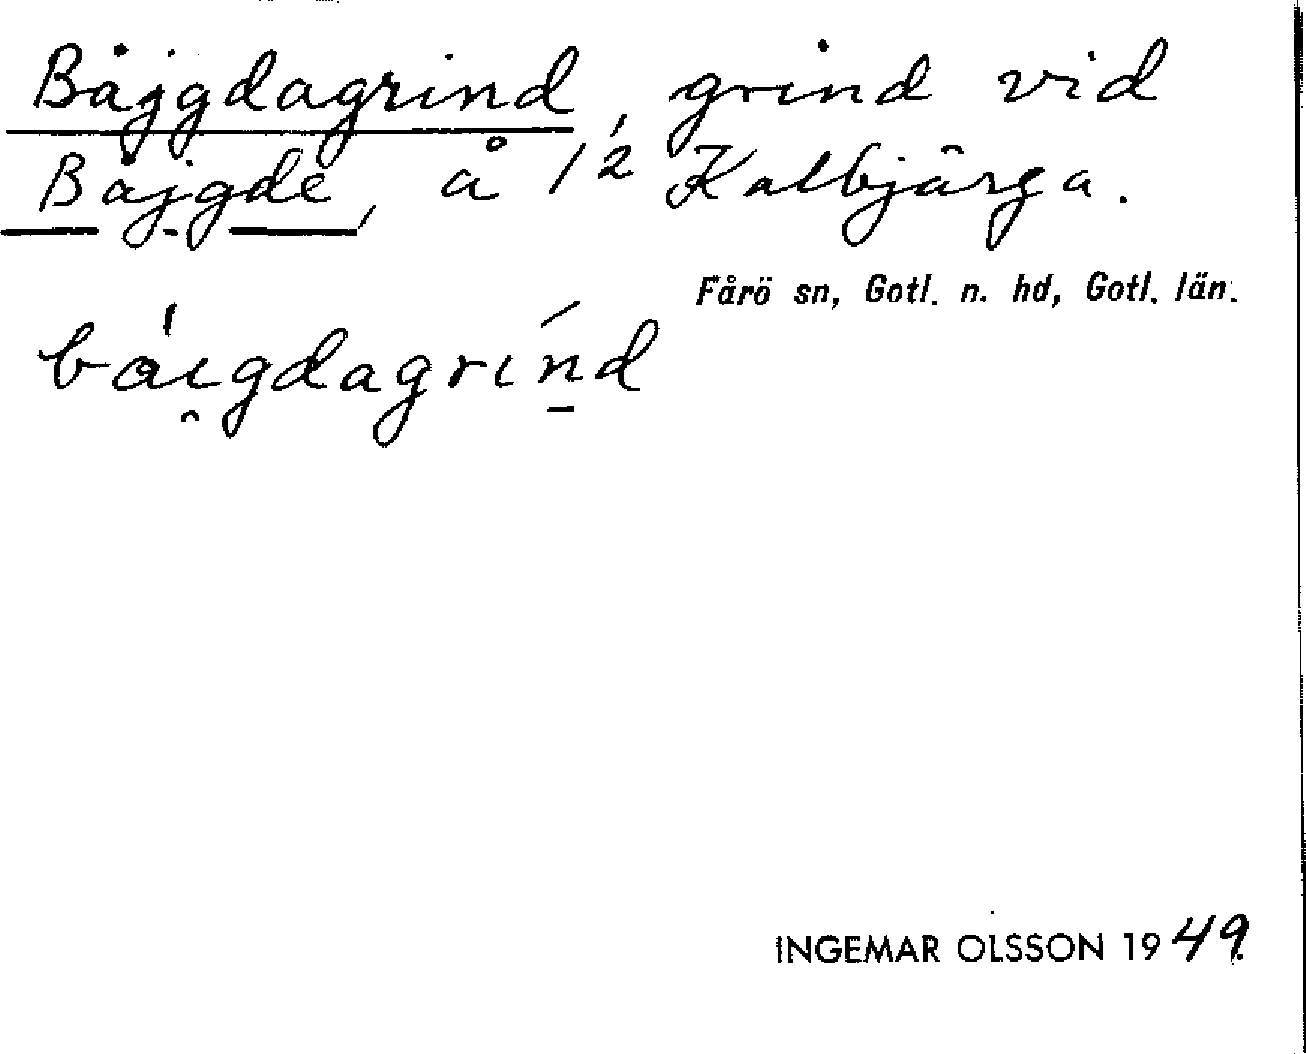 Båjgdagrind, grind vid
Båjgde, å 1/2 Kalbjärga.
Fårö sn, Gotl. n. hd, Gotl. län.
bái̯gdagrín̲d
INGEMAR OLSSON 1949.